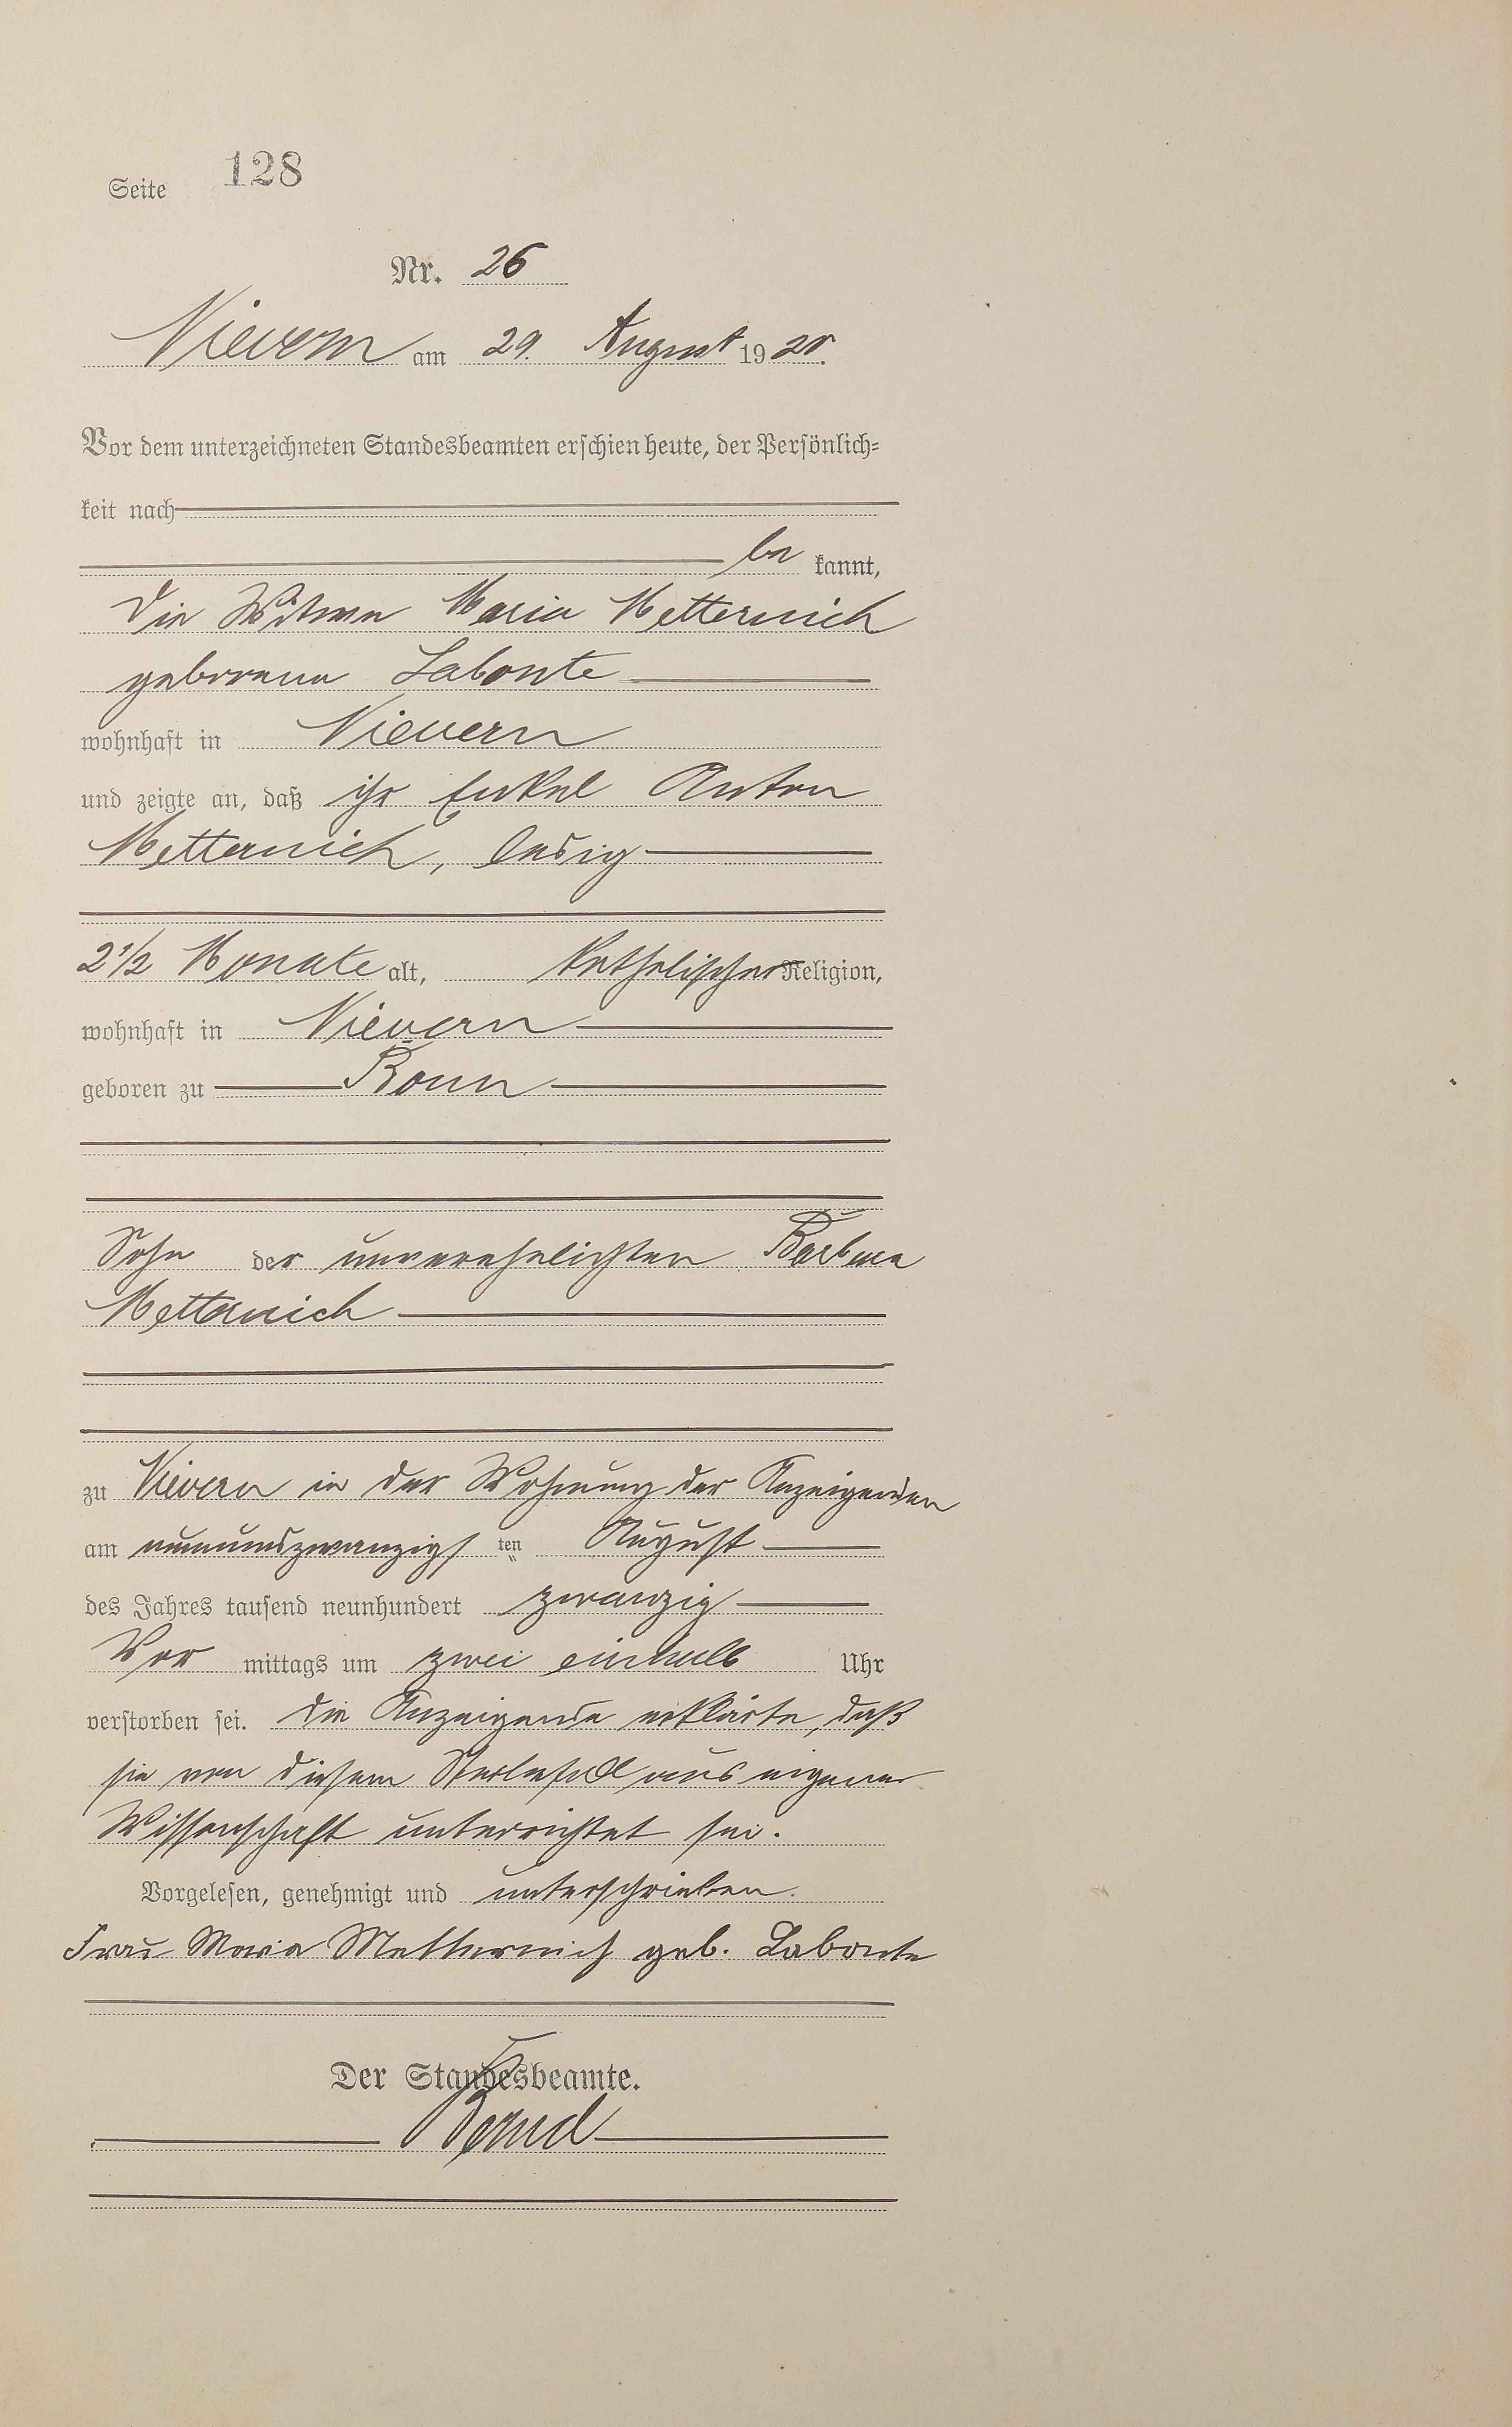 Seite 128
Nr. 26
Nievern am 29. August 1920.
Vor dem unterzeichneten Standesbeamten erschien heute, der Persönlich-
keit nach
be kannt,
die Witwe Maria Metternich
geborene Labonte
wohnhaft in Nievern
und zeigte an, daß ihr Enkel Anton
Metternich, ledig
2 1/2 Monate alt, katholischer Religion,
wohnhaft in Nievern
geboren zu Bonn
Sohn der unverehelichten Barbara
Metternich
zu Nievern in der Wohnung der Anzeigenden
am neunundzwanzigsten August
des Jahres tausend neunhundert zwanzig
Vor mittags um zwei einhalb Uhr
verstorben sei. Die Anzeigende erklärte, daß
sie von diesem Sterbefall aus eigener
Wissenschaft unterrichtet sei.
Vorgelesen, genehmigt und unterschrieben.
Frau Maria Metternich geb. Labonte
Der Standesbeamte.